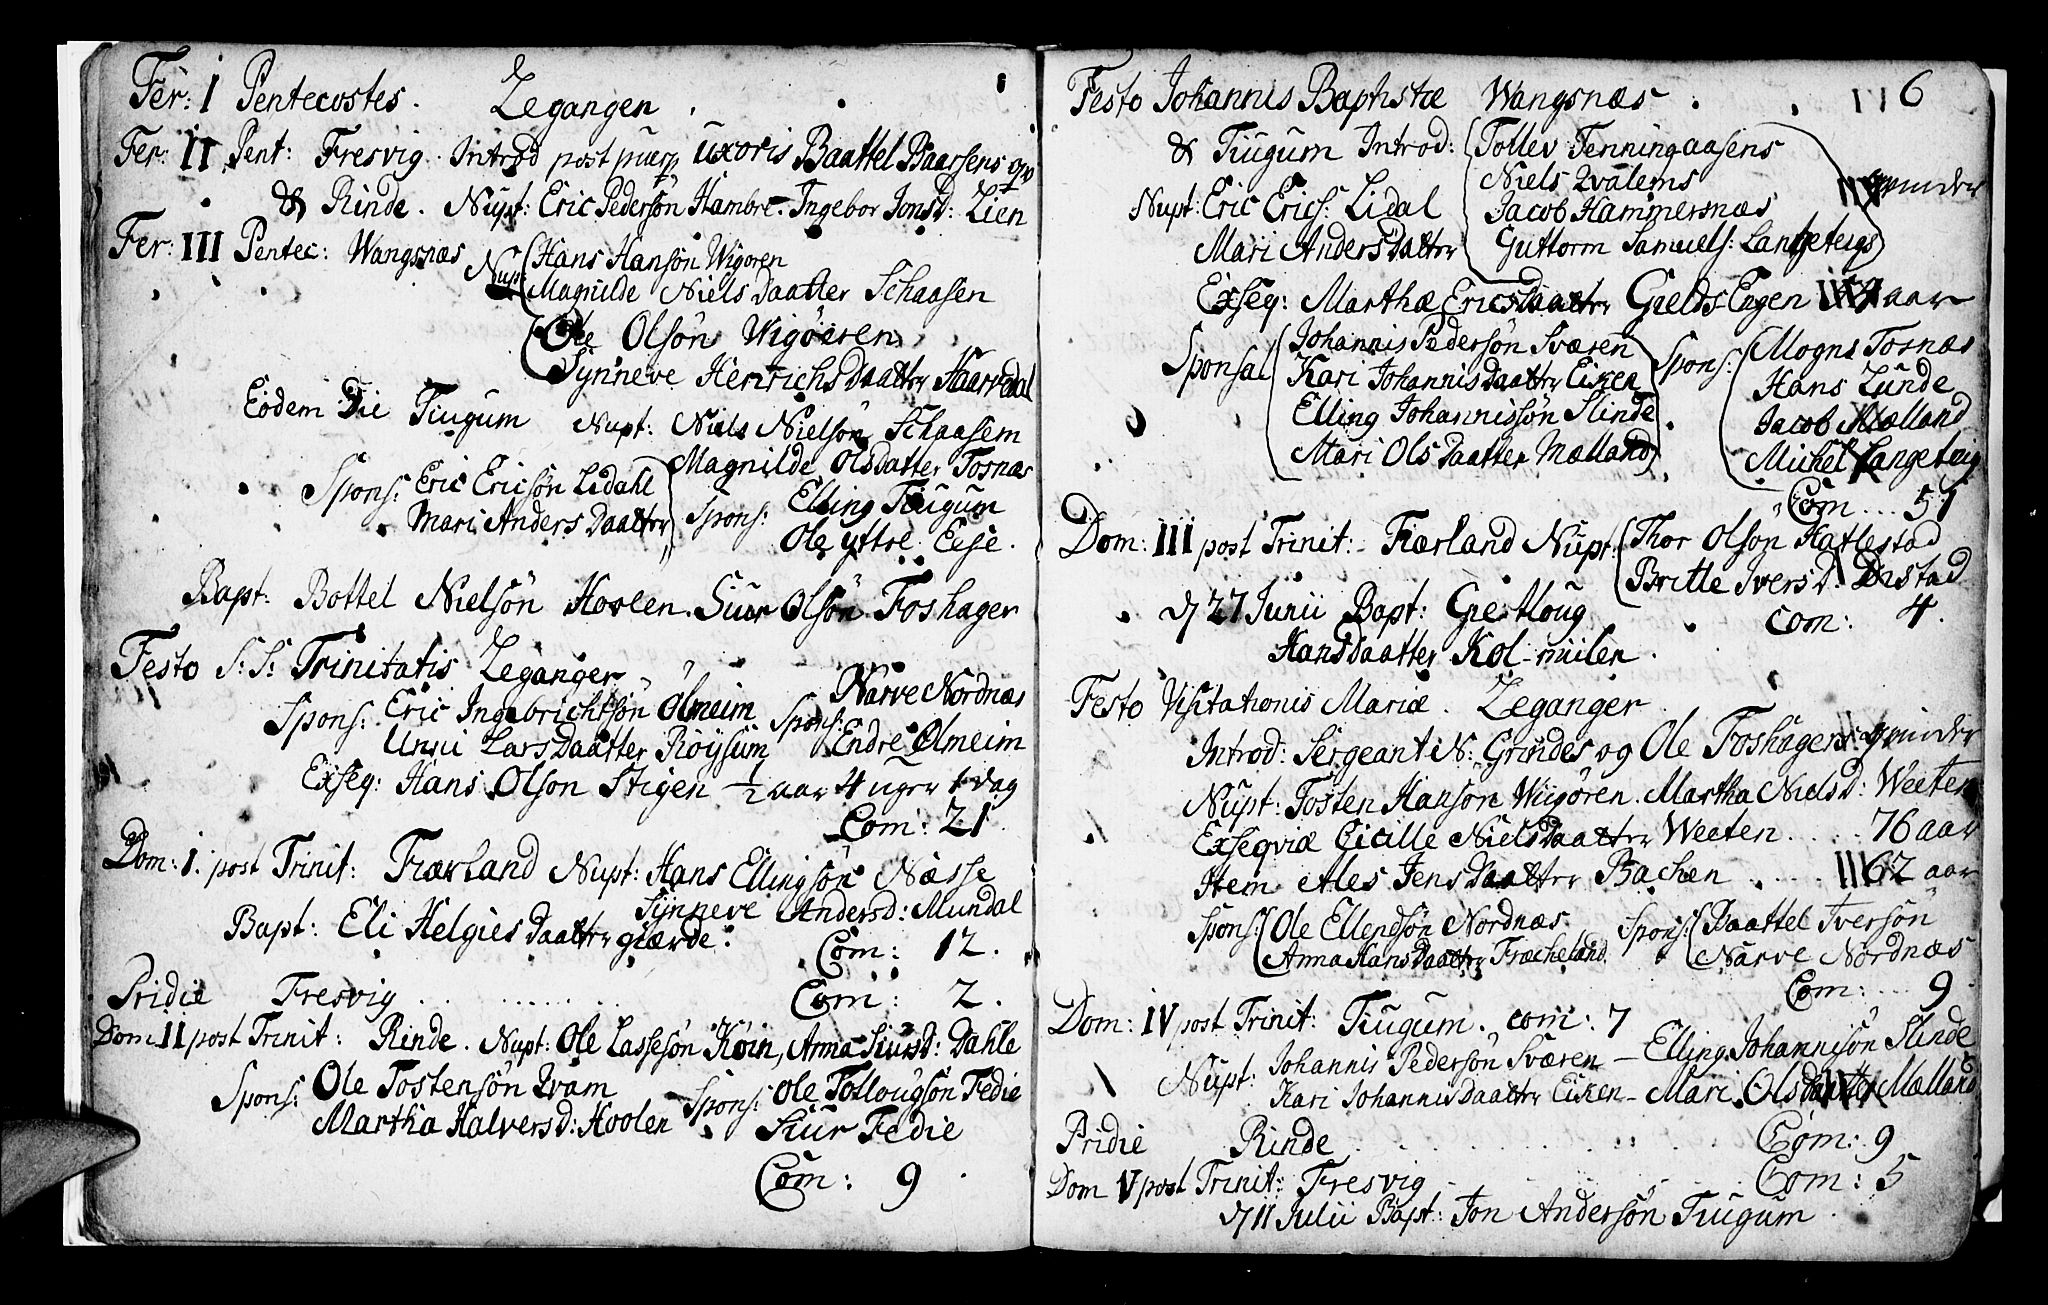 Fer: I Pentecostes. Leganger
Fer: II Pent: Fresvig. Introd post puerp uxoris Baattel Baarsens
& Rinde. Nupt: Eric Pedersön Hambre. Ingebor Jonsd: Lien
Fer: III Pentec: Wangsnæs Nupt: Hans Hansön Wigören
Magnilde NielsDaatter Schaasen
Ole Olsön Wigöeren
Synneve HenrichsDaatter
Eodem Die Tiugum Nupt: Niels Nielsön Schaasem
Magnilde Olsdatter Tosnæs
Spons: Eric Ericsön Lidahl
Mari AndersDaatter
Spons: Elling Tiugum
Ole yttre Eese.
Bapt: Bottel Nielsön Hovlen. Siur Olsön Foshager
Festo S: S: Trinitatis Leganger
Spons: Eric Ingebrichtsön Ölmeim
Unni LarsDaatter Röysum
Spons: Narve Nordnæs
Endre Ölmeim
Exseq: Hans Olson Stigen ½ aar 4 uger 1 dag
Com: 21.
Dom: I. post Trinit: Fiærland Nupt: Hans Ellingsön Næsse
Synneve Andersd: Mundal
Bapt: Eli HelgiesDaatter giærde.
Com: 12.
Pridie Fresvig . . . . . . . Com: 2.
Dom: II post Trinit: Rinde. Nupt: Ole Lassesön Köin, Anna Siursd: Dahle
Spons: Ole Tostensön Qvam
Martha Halversd: Hoolen
Spons: Ole Tollougsön Fedie
Siur Fedie
Com: 9.
6
Festo Johannis Baptistæ Wangsnæs
& Tiugum Introd: Tollev Fenningaasens
Niels Qvalems
Jacob Hammersnæs
Guttorm Samuels: Langeteigs
qvinder
Nupt: Eric Erics: Lidal
Mari AndersDaatter
Exseq: Marthæ EricsDaatter GieldsEngen aar
Sponsal Johannis Pedersön Sværen
Kari JohannisDaatter Eiken
Elling Johannissön Slinde
Mari OlsDaatter Mælland
Spons: Mogns Tosnæs
Hans Lunde
Jacob Mælland
Michel Langeteig
Com . . . 51
Dom: III post Trinit: Fiærland Nupt: Thor Olsön Hatlestad
Britte Iversd: Distad
d 27 Junii Bapt: Giertloug
HansDaatter Kol-miilen.
Com: 4.
Festo Visitationis Mariæ. Leganger
Introd: Sergeant N: Grindes og Ole Foshagens qvinder
Nupt: Tosten Hansön Wiigören. Martha Nielsd: Weeten
Exseqviæ Cicille NielsDaatter Weeten . . . . 76 aar
Item Ales JensDaatter Bachen . . . . 62 aar
Spons: Ole Ellendsön Nordnæs
Anna HansDaatter Fræcheland
Spons: Baattel Iversön
Narve Nordnæs
Com: . . . 9.
Dom: IV post Trinit: Tiugum. com: 7
Nupt: Johannis Pedersön Sværen – Elling Johannisön Slinde
Kari JohannisDaatter Eiken – Mari OlsDaatter Mælland
Pridie Rinde . . . . . . . Com: 9
Dom V post Trinit: Fresvig . . . . Com: 5
d 11 Julii Bapt: Jon Andersön Tiugum.